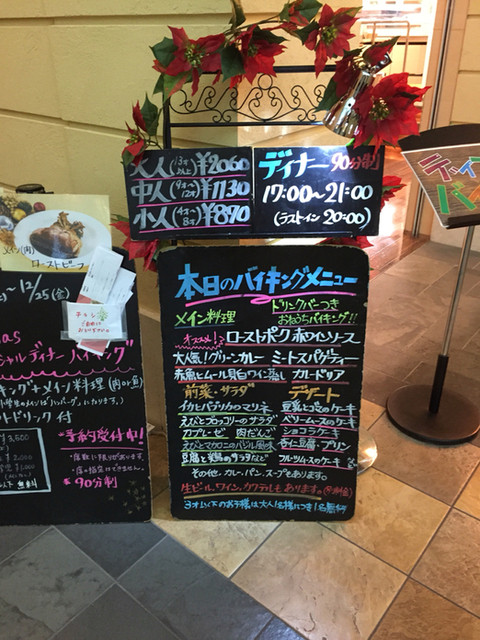 大人(13才以上)¥2060
中人(9才〜12才)¥1130
小人(4才〜8才)¥870
ディナー 90分制
17:00〜21:00
(ラストイン 20:00)
本日のバイキングメニュー
メイン料理
ドリンクバーつき
おたのうちバイキング!!
オススメ!
ローストポーク赤ワインソース
大人気!グリーンカレー ミートスパゲティー
赤魚とムール貝白ワイン蒸し カチャトリア
前菜・サラダ
イカとパプリカのマリネ
えびとブロッコリーのサラダ
カプレーゼ 肉だんご
えびとマカロニのバジル風味
豆腐と蒸鶏のサラダなど
デザート
豆乳とコマのケーキ
ベリームースのケーキ
ショコラケーキ
杏仁豆腐・プリン
フルーツムースのケーキ など
その他、カレー、パン、スープもあります。
生ビール、ワイン、カクテルもあります。(別料金)
3才以下のお子様は大人1名様につき1名無料
メイン(肉)
ローストビーフ
チラシ
〜12/25(金)
as
シャルディナーバイキング
キング+メイン料理(肉or魚)
学生のメインは"ハンバーグ"になります。)
トドリンク付
予約受付中!
・席数に限りがあります。
・席の指定はできません。
90分制
3,500
2,000
1,000
以下 無料
ディナー
バイ